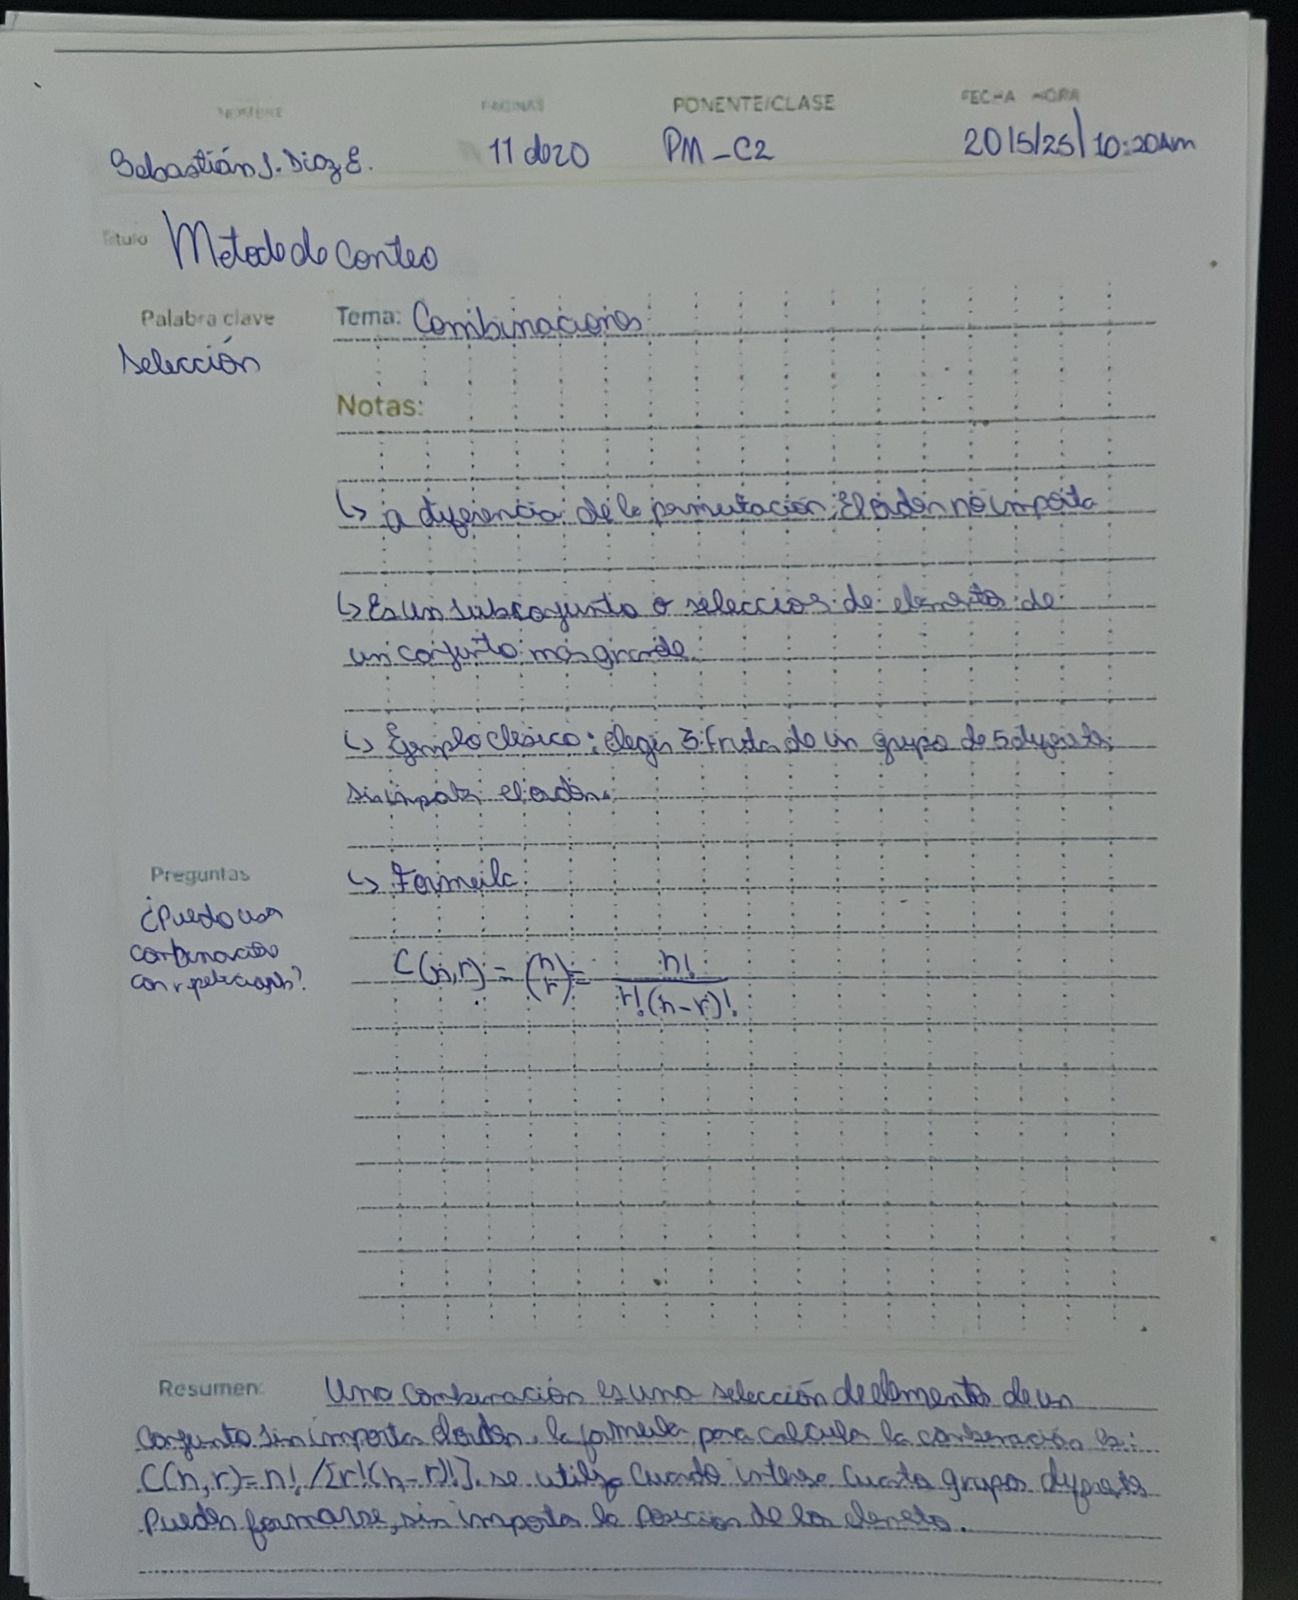 NOMBRE PAGINAS PONENTE/CLASE FECHA HORA
Sebastián J. Diaz E. 11 de 20 PM-C2 20/5/25/10:20Am
Titulo Metodo de conteo
Palabra clave Tema: Combinaciones
Selección
Notas:
↳ a diferencia de la permutación, El orden no importa
↳ Es un subconjunto o seleccion de elementos de
un conjunto mas grande
↳ Ejemplo clasico: elegir 3 fruta de un grupo de 5 diferentes
sin importar el orden.
Preguntas ↳ Formula:
¿Puedo usar
combinación
con repeticion?
C(n,r) = (n r) = n! / r!(n-r)!
Resumen: Una combinación es una selección de elementos de un
conjunto sin importa el orden. la formula para calcular la combinación es:
C(n,r)=n!/[r!(n-r)!]. se utiliza cuando interesa cuantos grupos diferentes
pueden formarse, sin importa la posicion de los elemento.